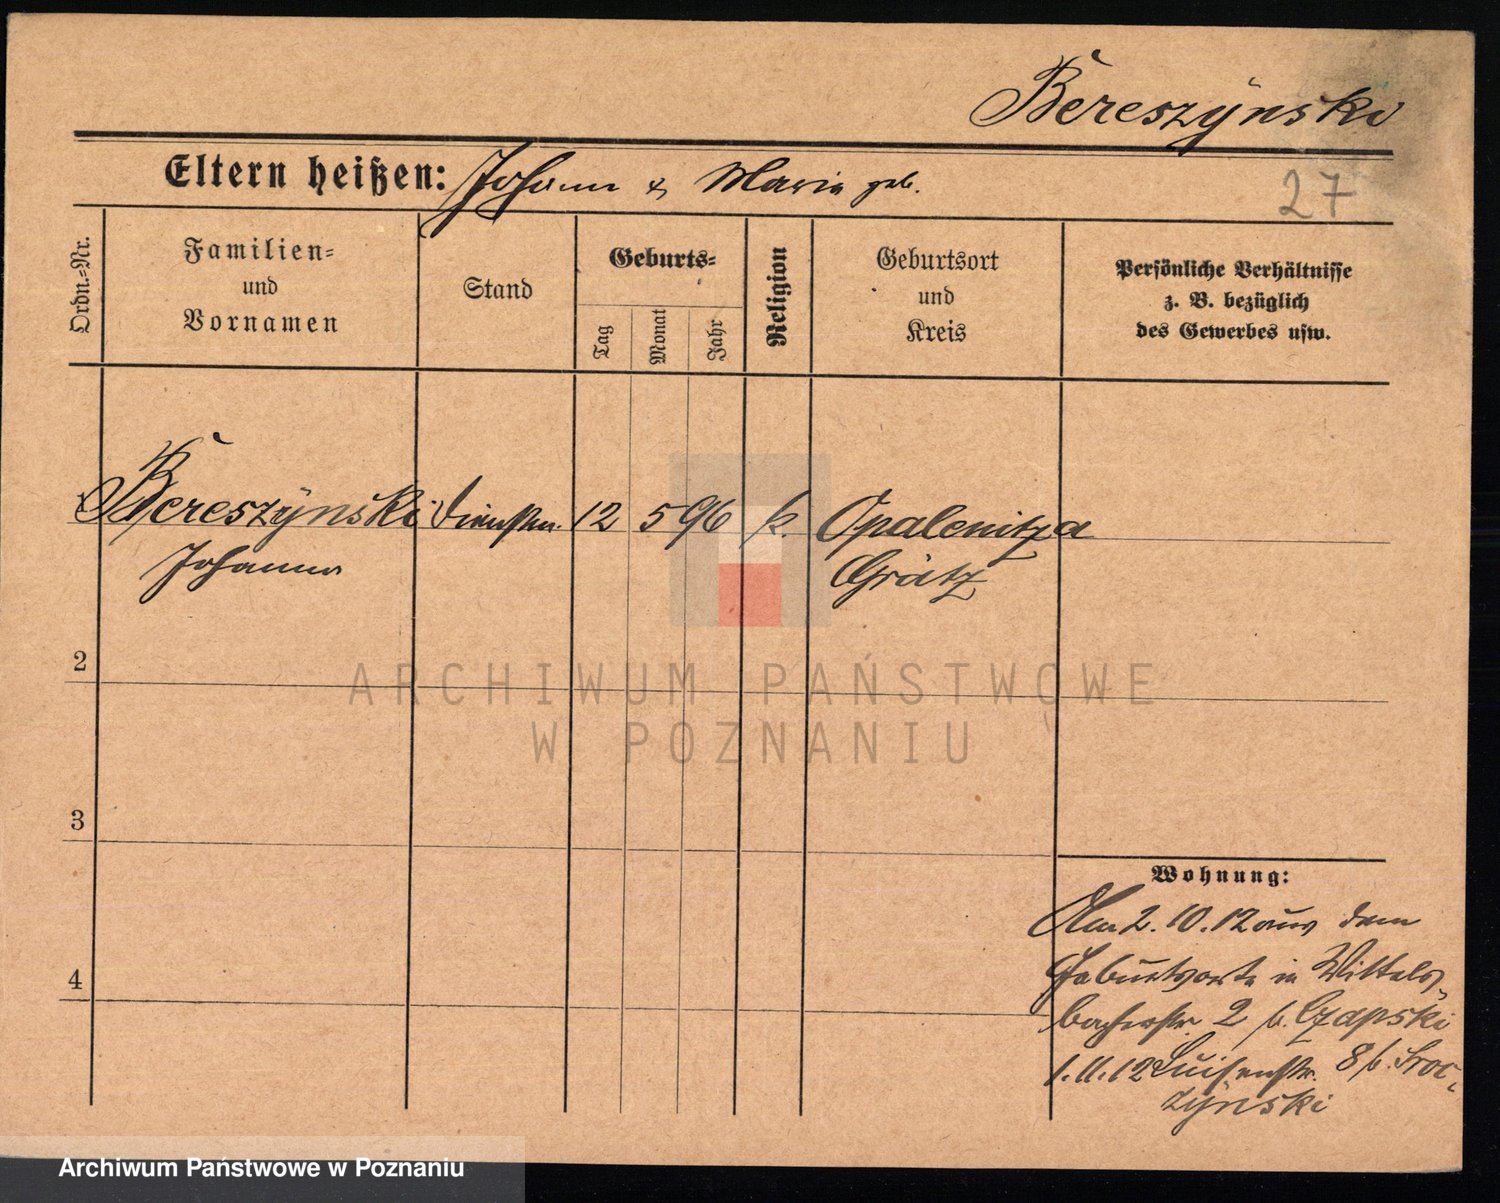 Bereszÿnski
Eltern heißen: Johann & Maria geb.
27
Ordn.=Nr.
Familien=
und
Vornamen
Stand
Geburts=
Tag
Monat
Jahr
Religion
Geburtsort
und
Kreis
Persönliche Verhältnisse
z. B. bezüglich
des Gewerbes usw.
1 Bereszÿnski 12 5 96 k. Opalenitza
Johanna
Grätz
2
3
4
Wohnung:
Am 2. 10. 12 aus dem
Geburtsorte in Wittels-
bacherstr. 2 b. Czapski
1. 11. 12 Luisenstr. 8 b.
zÿnski
ARCHIWUM PAŃSTWOWE
W POZNANIU
Archiwum Państwowe w Poznaniu